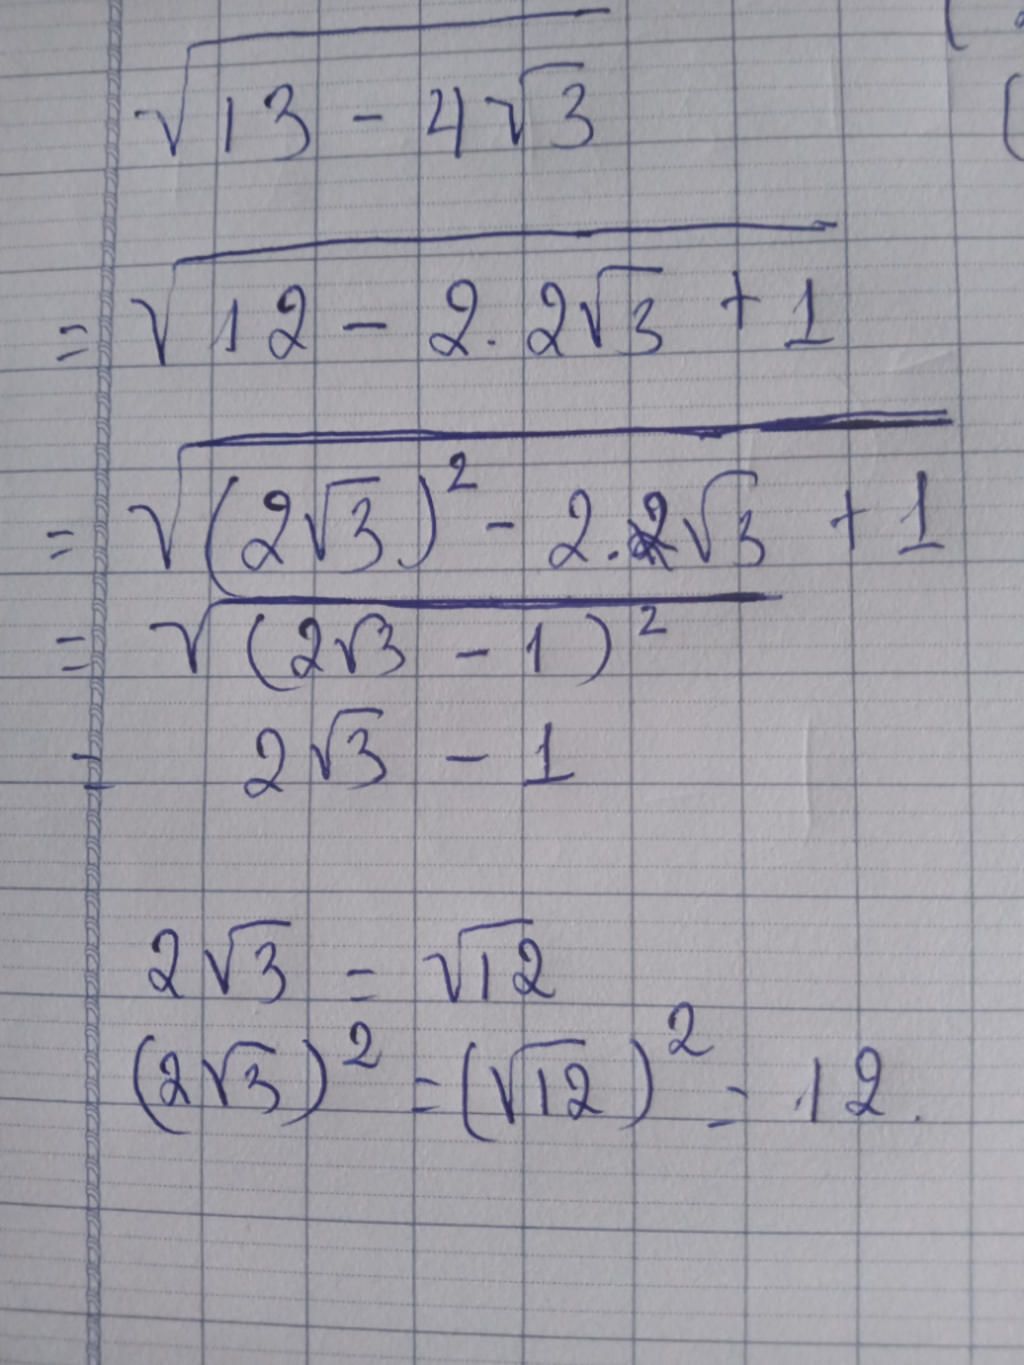 √(13 - 4√3)
= √(12 - 2.2√3 + 1)
= √((2√3)² - 2.2√3 + 1)
= √((2√3 - 1)²)
= 2√3 - 1
2√3 = √12
(2√3)² = (√12)² = 12.